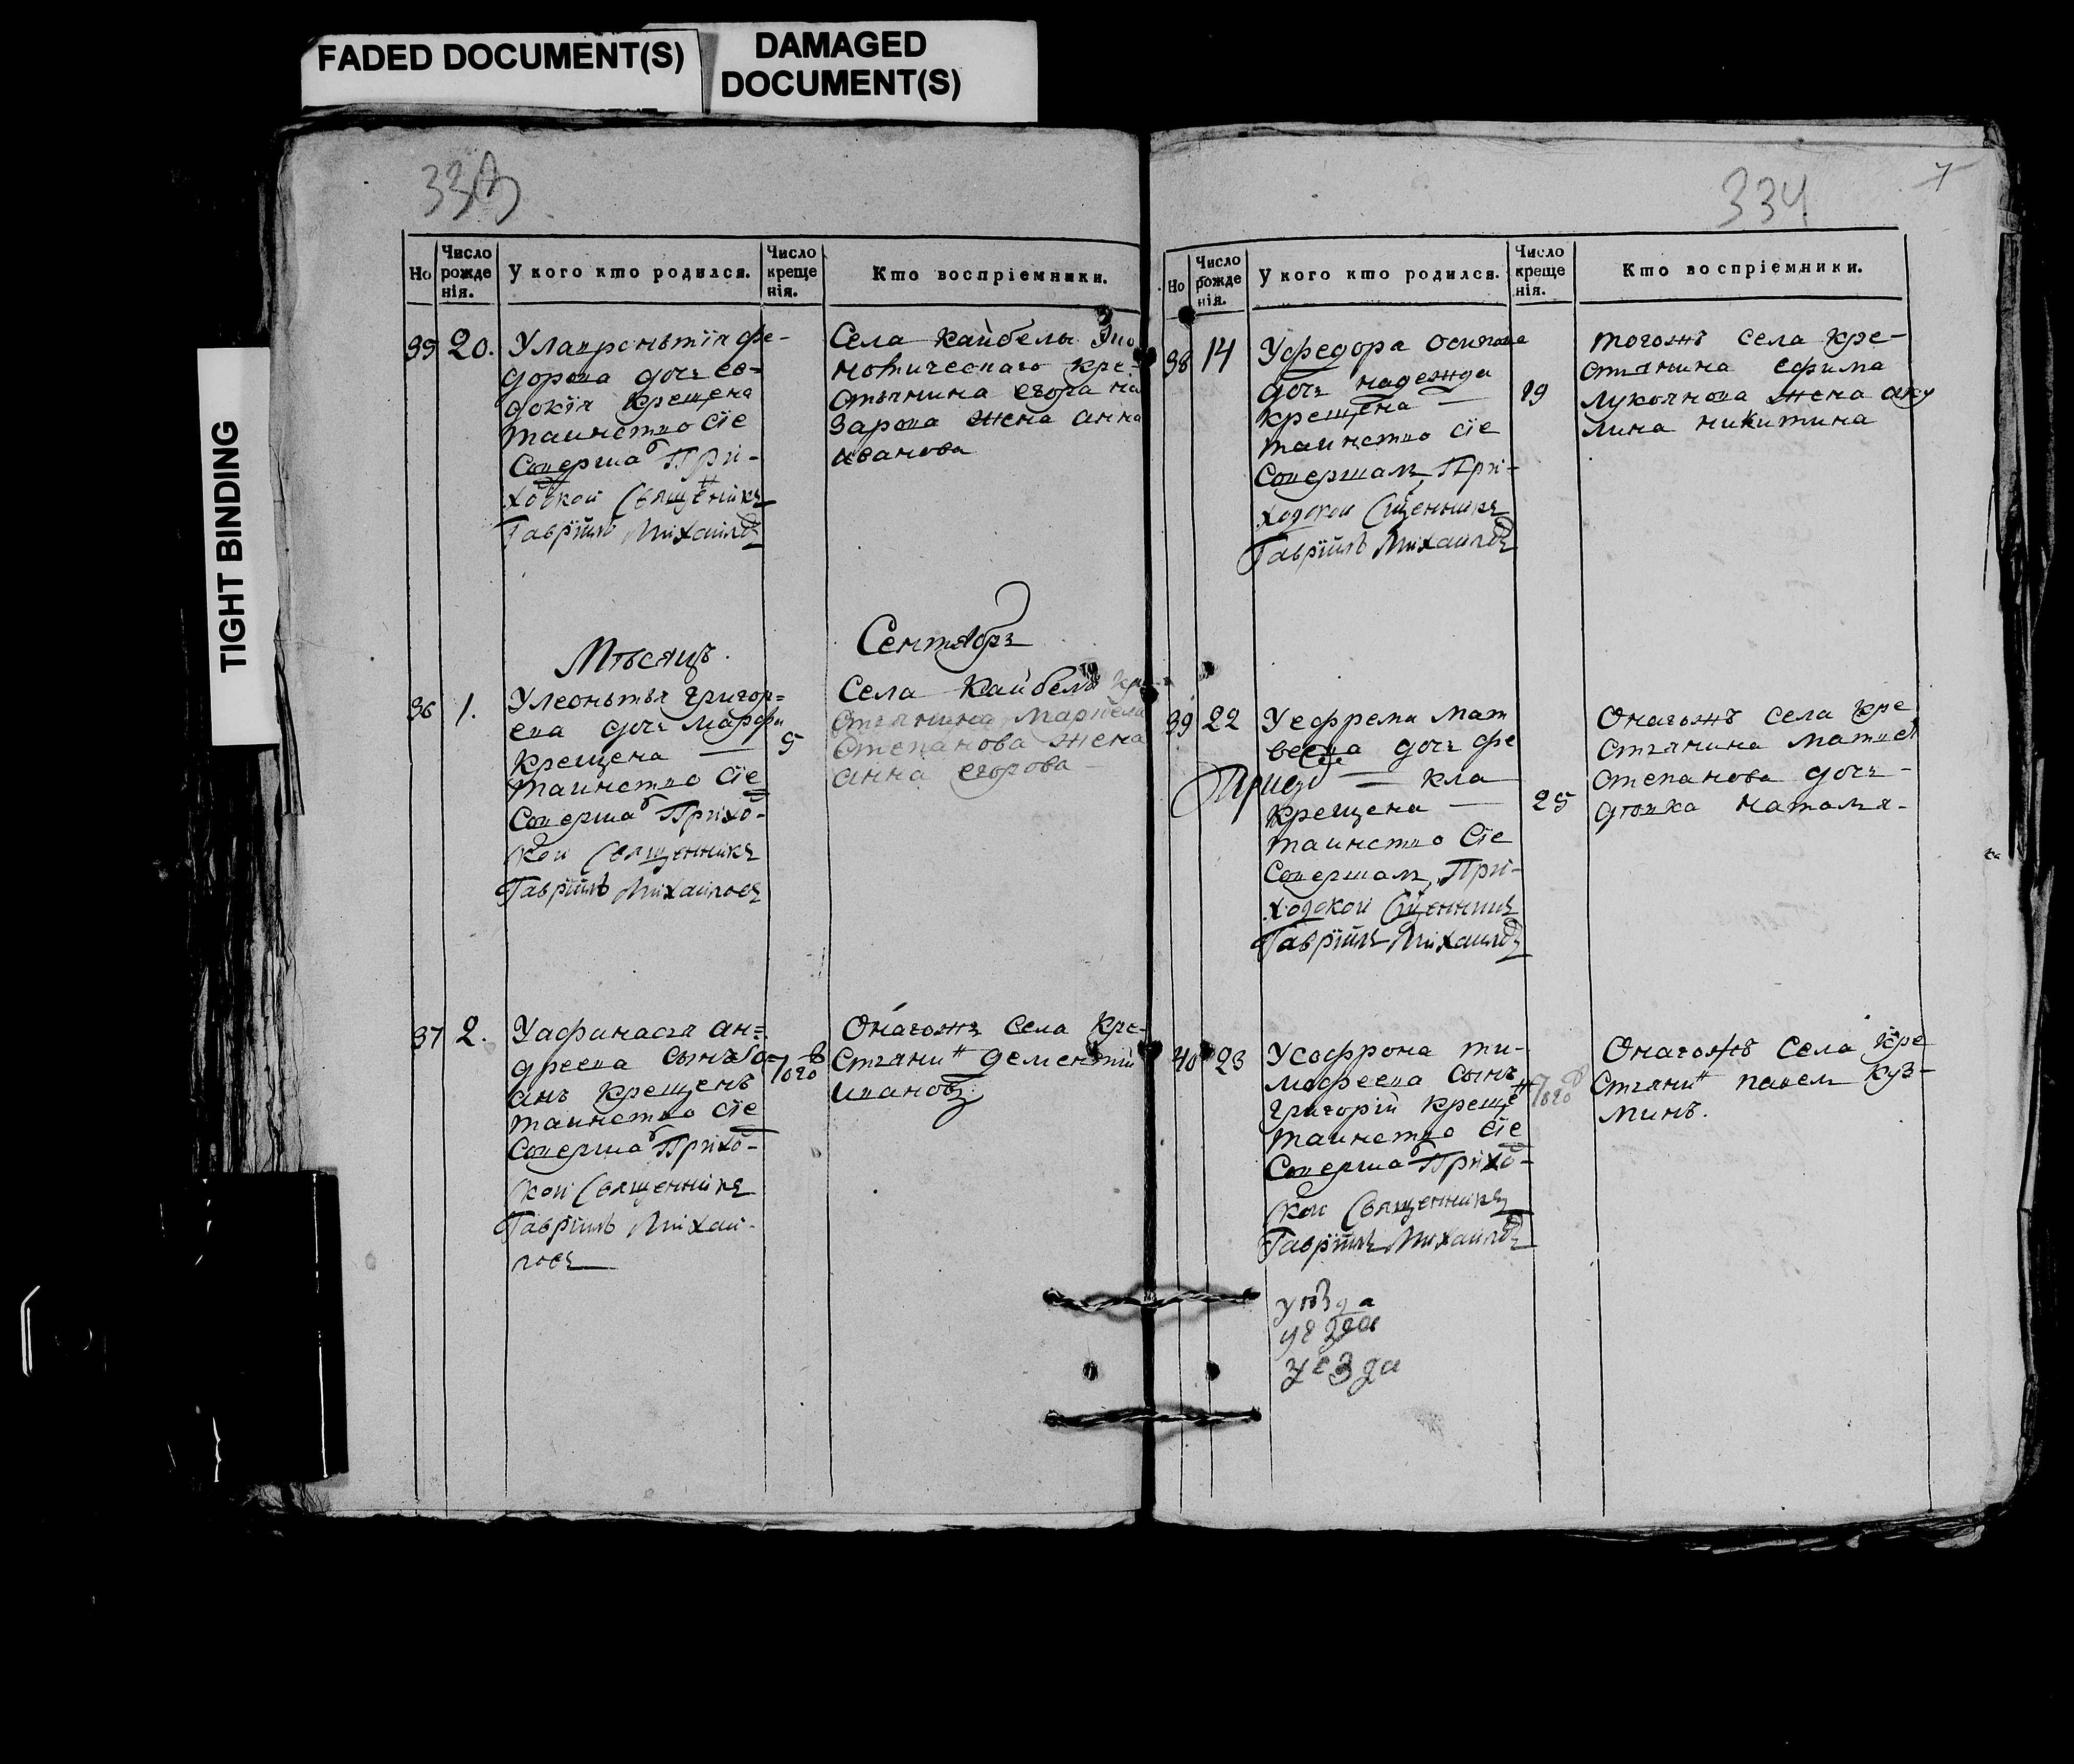 FADED DOCUMENT(S)
DAMAGED
DOCUMENT(S)
TIGHT BINDING
333
Но
Число рожде нія.
У кого кто родился.
Число креще нія.
Кто воспріемники.
35
20.
Улаврентїя фе-
дорова дочь ев-
докїя крещена
таинство сїе
Соверша При-
ходской Священникъ
Гаврїилъ Михаиловъ
Села Кайбелы Эко
номическаго кре-
стьянина егора на
зарова жена анна
иванова
Мѣсяцъ.
Сентябрь
36
1.
Улеонтья григор=
ева дочь марфа
крещена —
таинство сїе
Соверша Прихо-
кои Священникъ
Гаврїилъ Михаиловъ
5
Села Кайбелъ кре
стьянина
степанова жена
анна егорова
37
2.
Уафанасья ан=
дреева сынъ їо=
анъ крещенъ
таинство сїе
Соверша Прихо-
кои Священникъ
Гаврїилъ Михаи-
ловъ
7020
Онагожъ Села кре-
стьяни дементий
ивановъ
334
7
Но
Число рожде нія.
У кого кто родился.
Число креще нія.
Кто воспріемники.
38
14
Уфедора осипова
дочь надежда
крещена —
таинство сїе
Совершалъ При-
ходской Сщенникъ
Гаврїилъ Михаиловъ
19
тогожъ села кре-
стьянина ефима
лукоянова жена аку
лина никитина
39
22
Уефрема мат
веева дочь фе
— кла
крещена —
таинство сїе
Совершалъ При-
ходской Сщенникъ
Гаврїилъ Михаиловъ
25
Онагожъ села кре
стьянина матвея
степанова дочь-
девка наталья-
40
23
Усофрона ти-
мофеева сынъ
григорїй креще
таинство сїе
Соверша Прихо-
кои Священникъ
Гаврїилъ Михаиловъ
7020
Онагожъ Села кре
стьяни павелъ куз-
минъ.
уѣзда
уезда
уезда